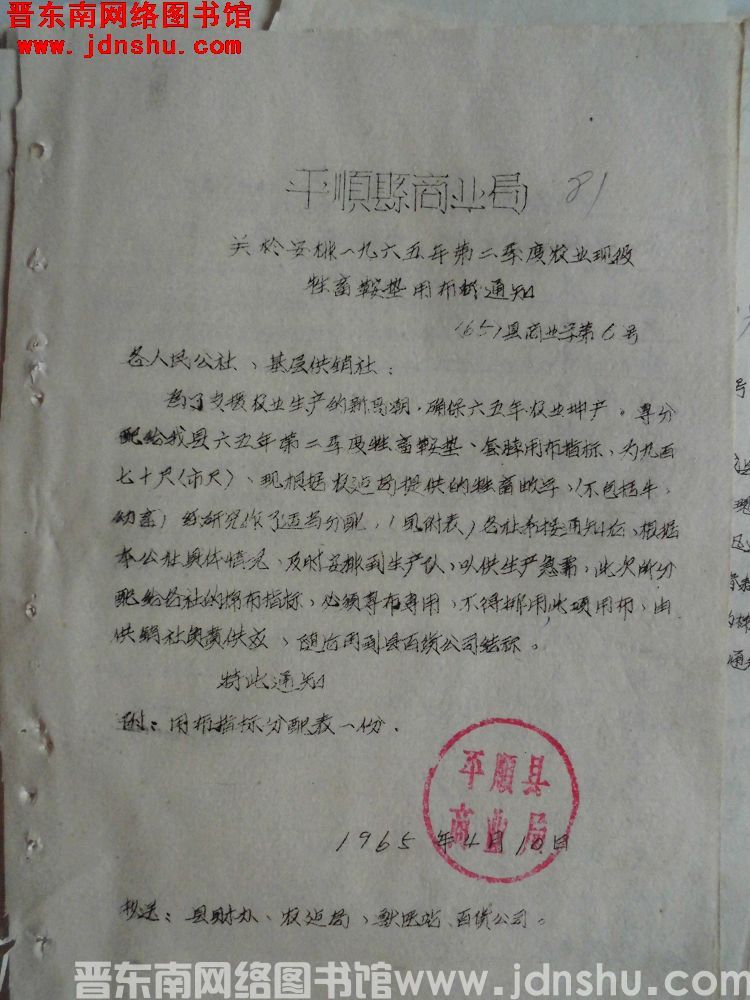 晋东南网络图书馆
www.jdnshu.com
平順縣商业局 81
关於安排一九六五年第二季度农业现役
牲畜鞍垫用布的通知
(65)县商业字第6号
各人民公社、基层供销社:
为了支援农业生产的新高潮,确保六五年农业增产。专分
配给我县六五年第二季度牲畜鞍垫、套脖用布指标,为九百
七十尺(市尺)、现根据农运局提供的牲畜数字,(不包括牛、
幼畜)经研究作了适当分配,(见附表)各社希接通知后,根据
本公社具体情况,及时安排到生产队,以供生产急需,此次所分
配给各社的棉布指标,必须专布专用,不得挪用此项用布,由
供销社负责供应、随后再到县百货公司结标。
特此通知
附:用布指标分配表一份.
平顺县
商业局
1965年4月10日
抄送:县财办、农运局、兽医站、百货公司。
晋东南网络图书馆www.jdnshu.com